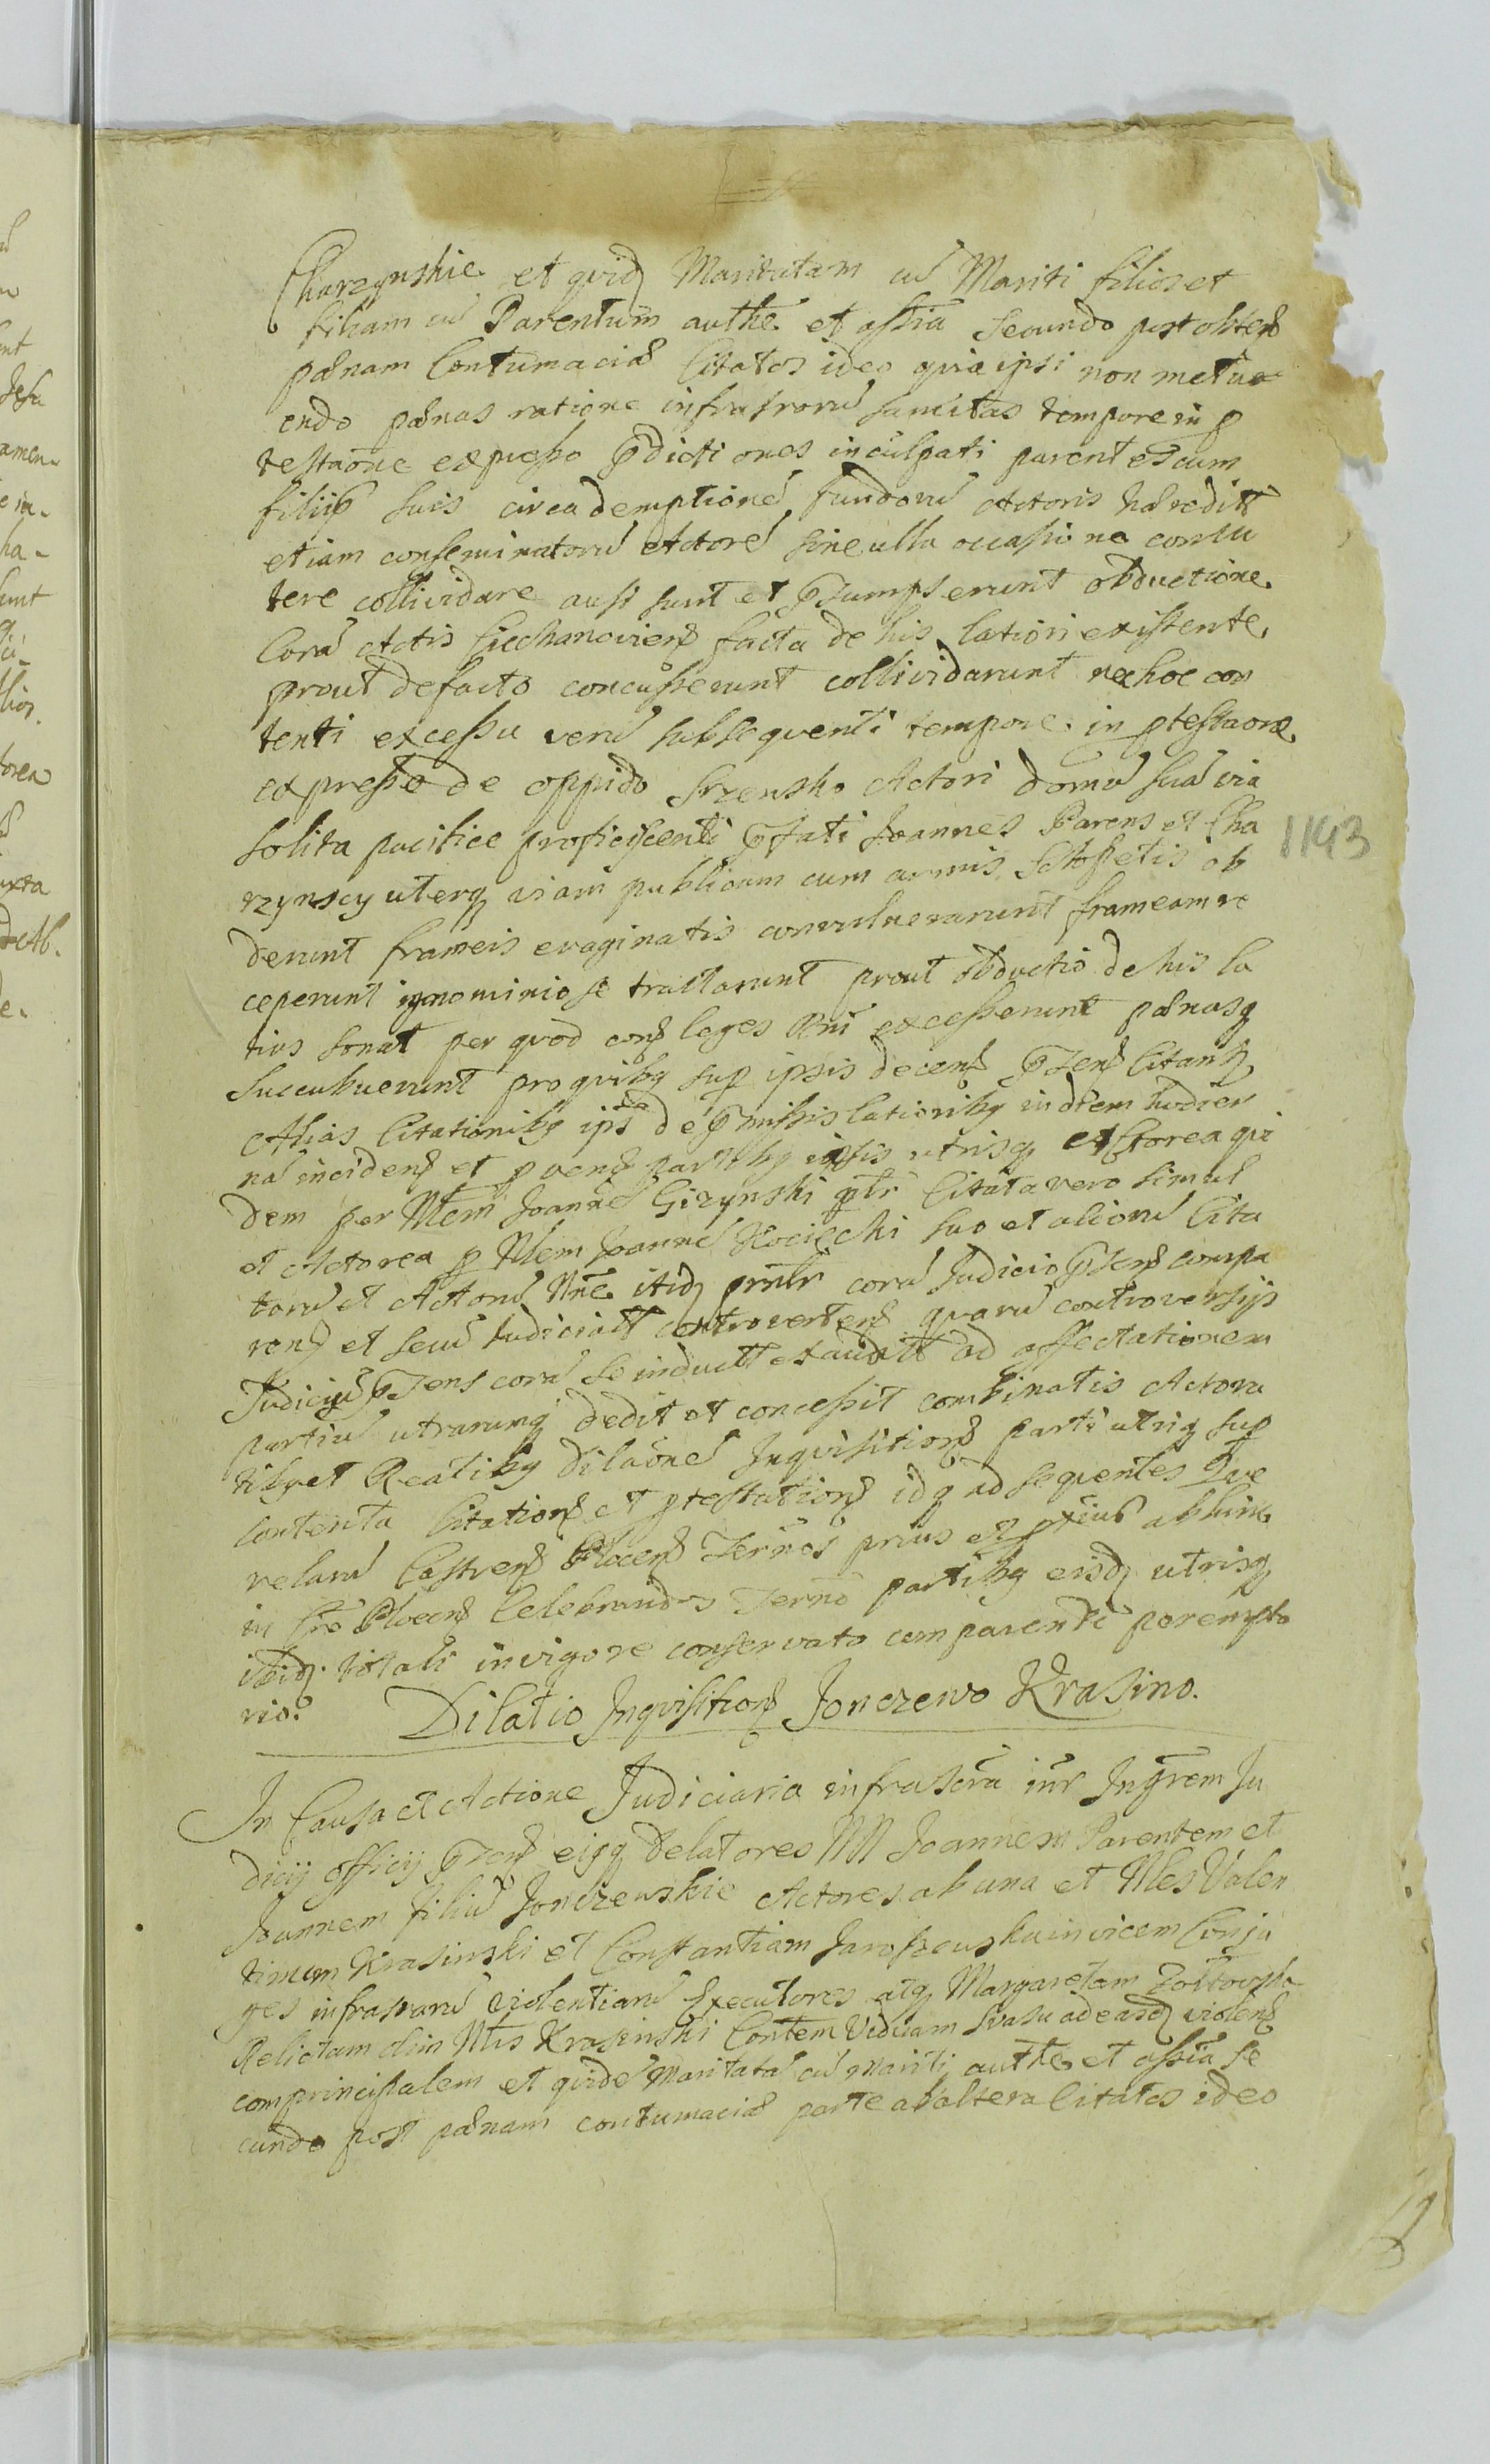 Charzynskie et quid Maritatam cu Mariti filios et
filiam cu Parentum authe et assia secundo post obtens
pænam Contumaciæ Citatos ideo quia ipsi non metu
endo pænas ratione infrasroru sancitas tempore in p
testaone expresso pdicti ones inculpati parentes cum
filiis suis circa demptione fundoru Actoris hæreditt
etiam conseminatoru Actore sine ulla occasione contu
tere collividare ausi sunt et psumpserunt obductione
Cora Actis Ciechanoviens facta de his latiori existente
prout de facto concusserunt collividarunt nec hoc con
tenti excessu veru subsequenti tempore in ptestaone
expresso de oppido Srzensko Actori domu sua via
solita pacifice proficiscenti pfati Joannes Parens et Cha
rzynscy uterq viam publicam cum armis Sclopetis ob
derunt frameis evaginatis convulnerarunt frameam re
ceperunt ignominiose tractarunt prout obductio de his la
tius sonat per quod cons leges Rni excesserunt pænasq
succubuerunt pro quibq sup ipsis decens psens Citantq
Alias Citationibq ipsa de pmissis lationibq in diem hodier
na incidens et pvens partibq ipsis utrisq Actorea qui
dem per Nlem Joanne Gizynski pltr Citata vero simul
et Actorea p Nlem Joanne Kociecki suo et alioru Cita
toru et Actoru Nne itidq prntr cora Judicio psens compa
rens et secu Judicialtt controvertens quaru controversijs
Judiciu psens cora se inductt exauditt ad affectationem
partiu utrarumq dedit et concessit combinatis Actora
tibq et Reatibq dilaone Inquisitions parti utriq sup
contenta Citations et ptestations idq ad sequentes Que
relaru Castrens Plocens Terinos prius et pxius abhinc
in Cro Plocens Celebrandos Termo partibq eisdq utrisq
ibidq totali in vigore conservato comparendi perempto
rio.
Dilatio Inquisitions Jonczewo Krasino.
In Causa et Actione Judiciaria infrascra intr Ingrem Ju
dicij officij psens eiqq delatores NN Joannem Parentem et
Joannem filiu Jonczewskie Actores ab una et Nles Valen
tinum Krasinski et Constantiam Jaroszewska invicem Conju
ges infrasraru violentiaru Executores atq Margaretam Zoltowska
Relictam olim Nlis Krasinski Contem Viduam svasu ad easdq violens
comprincipalem et quide Maritata cu Mariti authe et assia se
cundo post pænam contumaciæ parte ab altera Citatos ideo
1143